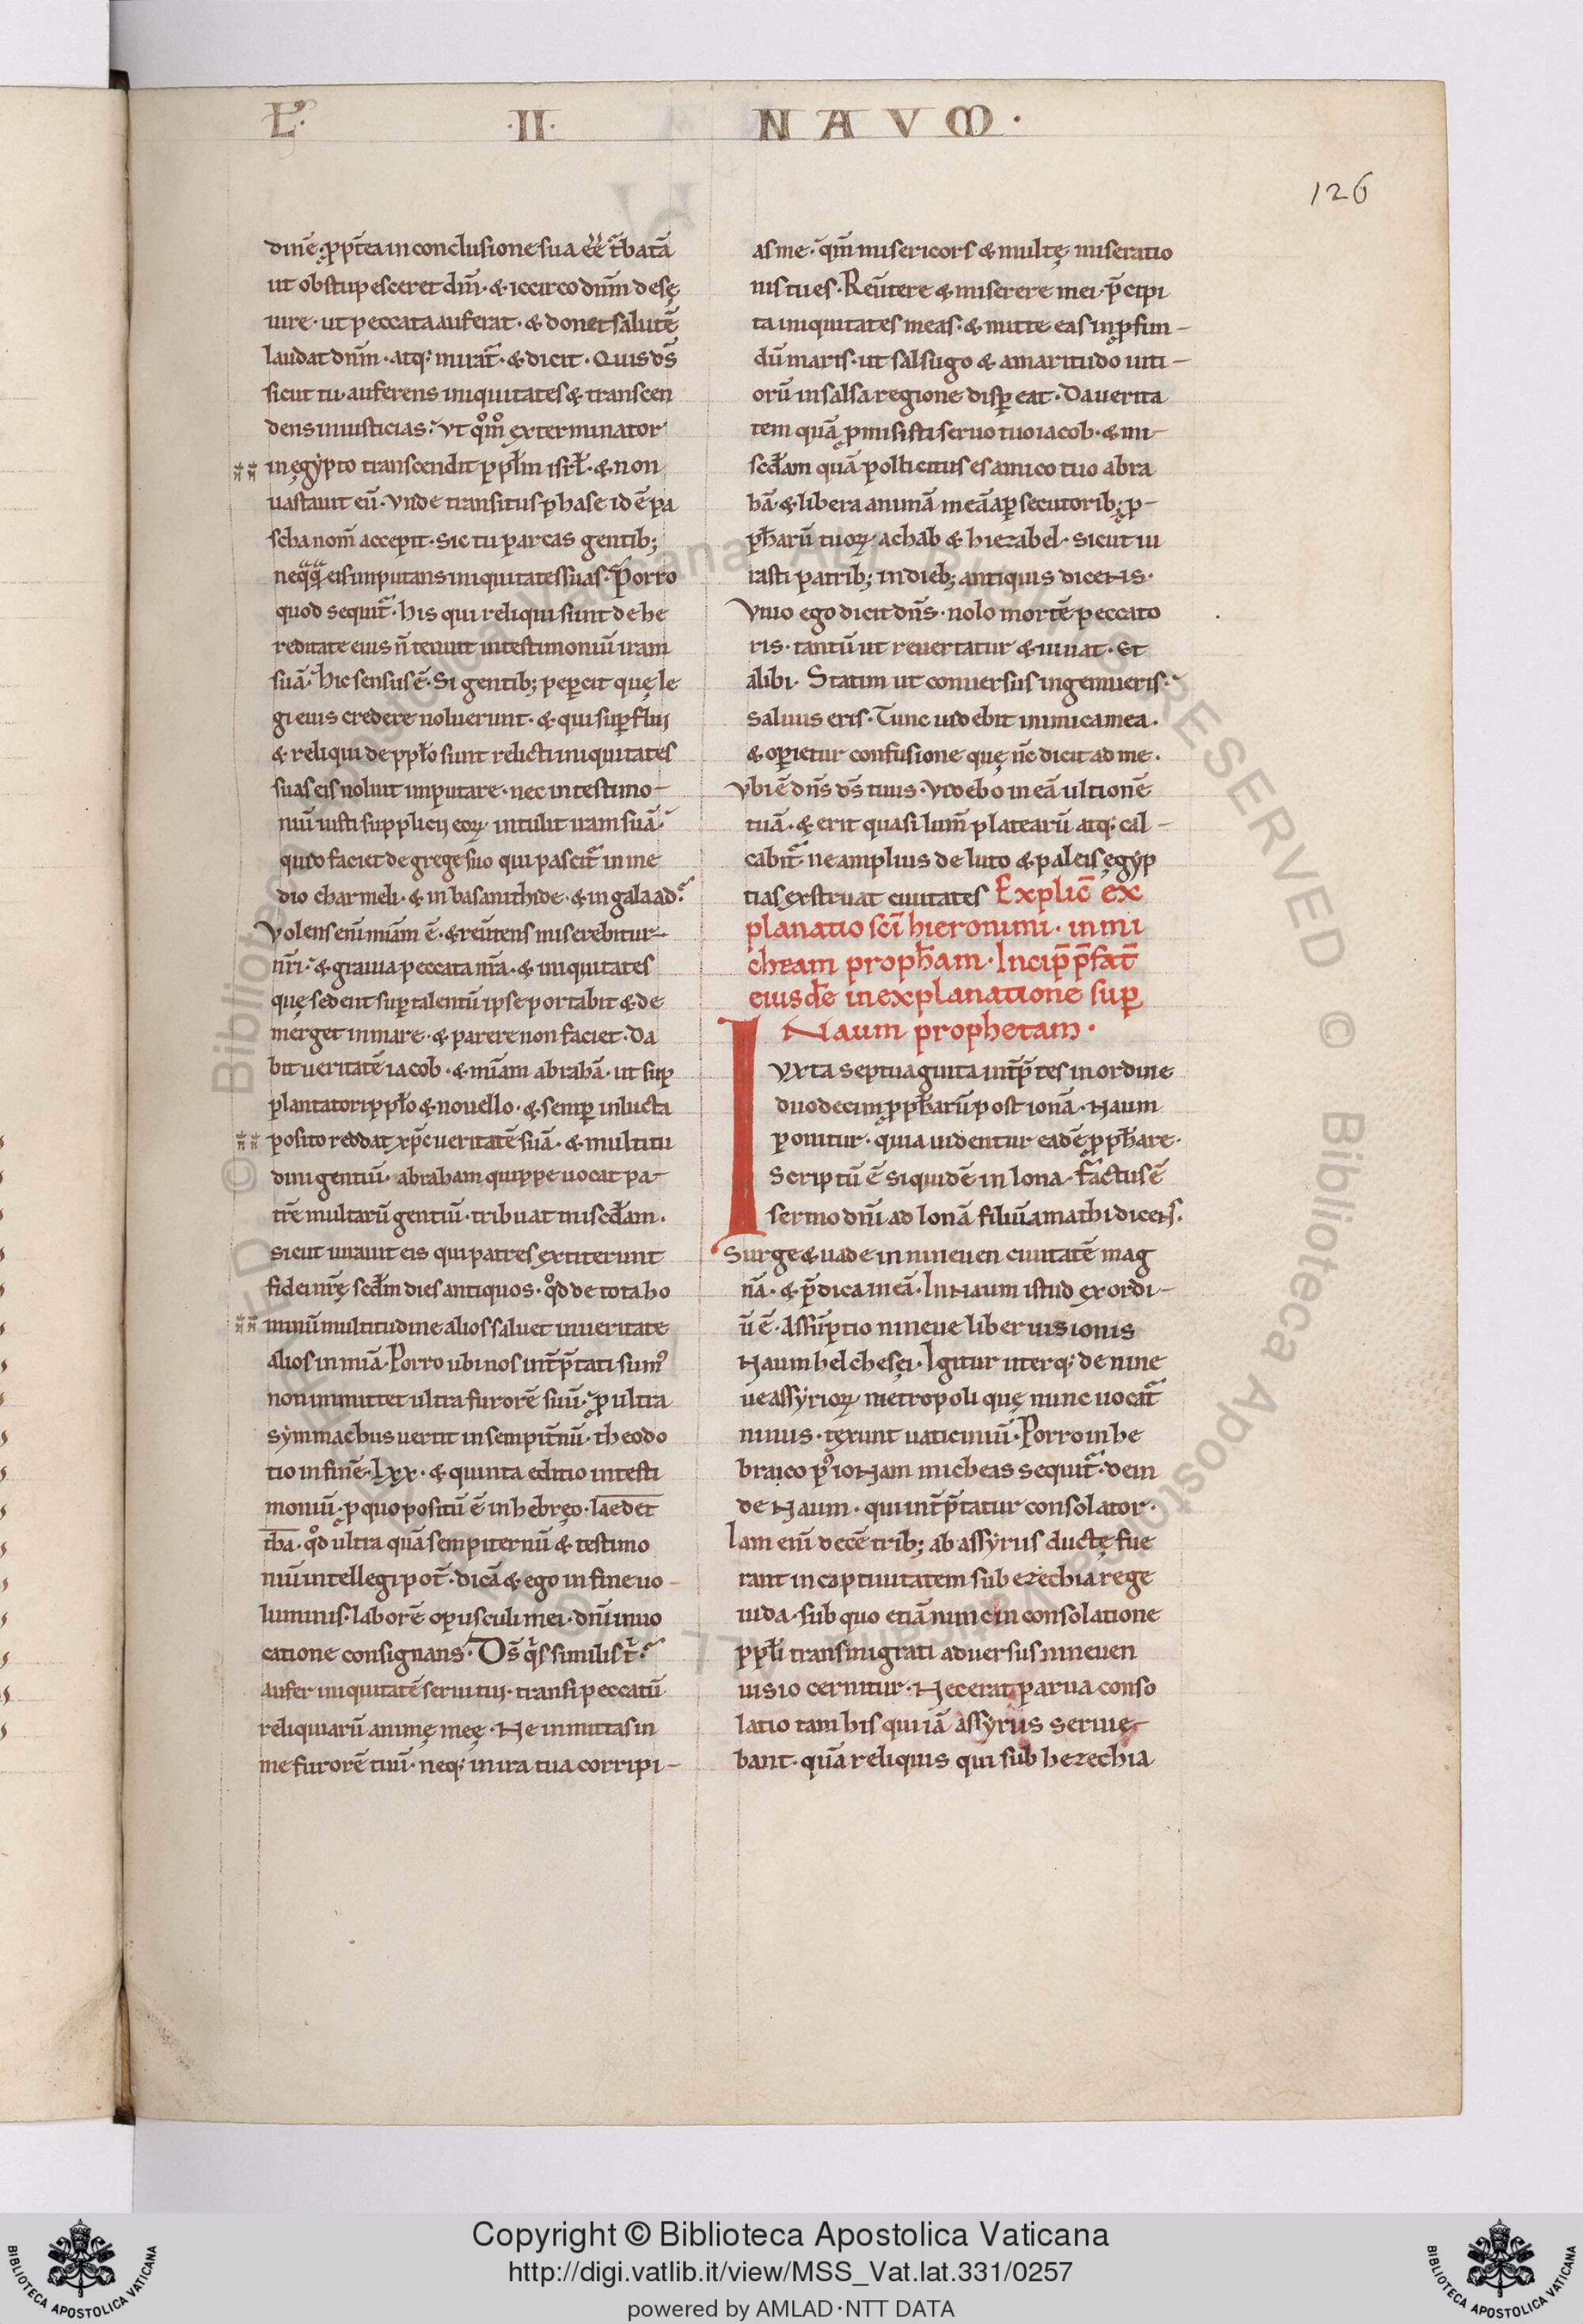 L̅. ·II· NAVM·
126
dinē· ꝓpt̄ea in conclusione sua ee̅ t̄batā
ut obstupesceret dn̄i· & iccirco dnm̄ desę
uire· ut peccata auferat· & donet salutē
laudat dnm̄· atq; mirat᷑· & dicit· Quis ds̄
sicut tu· auferens iniquitates & transcen
dens iniusticias? Vt qͦmͦ exterminator
in ęgypto transcendit ppl̄m isrl̄· & non
uastauit eū· Vnde transitus phase id ē pa
scha nom̄ accepit· Sic tu parcas gentib;
neqͣqͣ eis imputans iniquitates suas· Porro
quod sequit᷑· his qui reliqui sunt de he
reditate eius n̄ tenuit in testimoniū iram
suā· hic sensus ē· Si gentib; peꝑcit quę le
gi eius credere noluerunt· & qui suꝑflui
& reliqui de ppl̄o sunt relicti iniquitates
suas eis noluit imputare· nec in testimo-
niū iusti supplicij eoꝝ intulit iram suā·
quid faciet de grege suo qui pascit᷑ in me
dio charmeli· & in basanithide· & in galaad?
Volens eni miam̄ ē· & reūtens miserebitur-
nr̄i· & grauia peccata nr̄a· & iniquitates
quę sedent suꝑ talentū ipse portabit & de
merget in mare· & parere non faciet· Da
bit ueritatē iacob· & mīam abrahā· ut suꝑ
plantatori ppl̄o & nouello· & semꝑ in lucta
posito reddat xp̄c ueritatē suā· & multitu
dini gentiū· abraham quippe uocat pa-
trē multarū gentiū· tribuat misc̄dam·
sicut iurauit eis qui patres extiterunt
fidei nr̄ę scd̄m dies antiquos· qͦd de tota ho
minū multitudine alios saluet in ueritate
alios in miā· Porro ubi nos int̄p̄tati sumꝰ
non immittet ultra furorē suū· ꝓ ultra
symmachus uertit in sempit̄nū· theodo
tio in finē· lxx· & quinta editio in testi
moniū· ꝓ quo positū ē in hebręo· laedet
tba̅· qͦd ultra quā sempiternū & testimo
niū intellegi pot̄· dicā & ego in fine uo-
luminis· laborē opusculi mei· dnī inuo
catione consignans· Ds̄ qͥs similis tͥ?
aufer iniquitatē serui tui· transi peccatū
reliquiarū animę meę· Ne inmittas in
me furorē tuū· neq; in ira tua corripi-
as me· qm̄ misericors & multę miseratio
nis tu es· Reūtere & miserere mei· p̄cipi
ta iniquitates meas· & mitte eas in ꝓfun-
dū maris· ut salsugo & amaritudo uiti-
orū in salsa regione disꝑeat· Da uerita
tem quā ꝓmisisti seruo tuo iacob· & mi-
scd̄am quā pollicitus es amico tuo abra
hā· & libera animā meā a ꝑsecutorib; p-
ph̄arū tuoꝝ· achab & hiezabel· Sicut iu
rasti patrib; in dieb; antiquis dicens·
Viuo ego dicit dn̄s· nolo mortē peccato
ris· tantū ut reuertatur & uiuat· Et
alibi· Statim ut conuersus ingemueris·
saluus eris· Tunc uidebit inimica mea·
& oꝑietur confusione quę nc̄ dicit ad me·
Vbi ē dn̄s ds̄ tuus· Videbo in eā ultionē
tuā· & erit quasi lutm̄ platearū atq; cal-
cabit᷑ ne amplius de luto & paleis ęgyp
tias exstruat ciuitates Explic̄ ex
planatio sci̅ hieronimi· in mi
cheam proph̄am· Incip̄ p̄fat̄
eiusdē in explanatione suꝑ
Naum prophetam·
IVxta septuaginta int̄p̄tes in ordine
duodecim ꝓph̄arū post ionā· Naum
ponitur· quia uidentur eadē ꝓph̄are·
Scriptū ē siquidē in Iona· factus ē
sermo dn̄i ad Ionā filiū amathi dicens·
Surge & uade in nineuen ciuitatē mag
nā· & p̄dica in eā· In Naum istud exordi-
ū ē· Assūptio nineue liber uisionis
Naum helchesęi· Igitur uterq; de nine
ue assyrioꝝ metropoli quę nunc uocat᷑
ninus· texunt uaticiniū· Porro in he
braico pꝰ ionam micheas sequit᷑· dein
de Naum· qui int̄p̄tatur consolator·
Iam eni decē trib; ab assyriis ductę fue
rant in captiuitatem sub ezechia rege
iuda· sub quo etiā nunc in consolatione
ppl̄i transmigrati aduersus nineuen
uisio cernitur· Nec erat parua conso
latio tam his qui iā assyriis seruię-
bant· quā reliquis qui sub hezechia
Copyright © Biblioteca Apostolica Vaticana
http://digi.vatlib.it/view/MSS_Vat.lat.331/0257
powered by AMLAD·NTT DATA
BIBLIOTECA APOSTOLICA VATICANA
BIBLIOTECA APOSTOLICA VATICANA